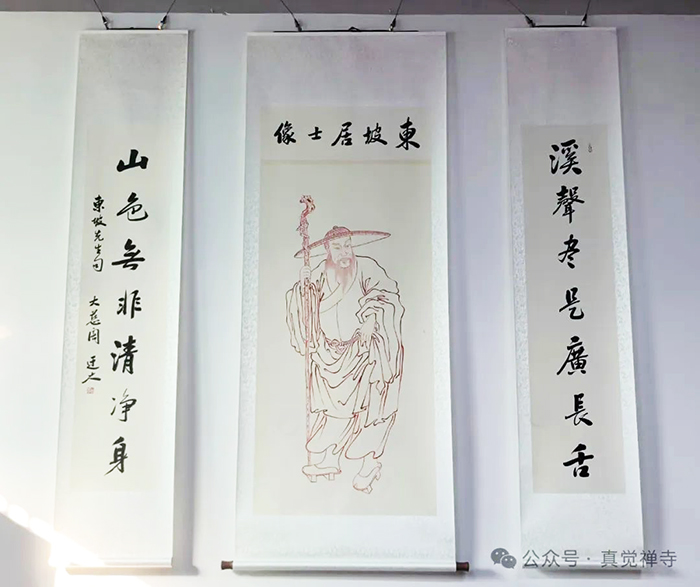 溪聲尽是廣長舌
東坡居士像
山色無非清净身
東坡先生句
大慈
公众号 · 真觉禅寺